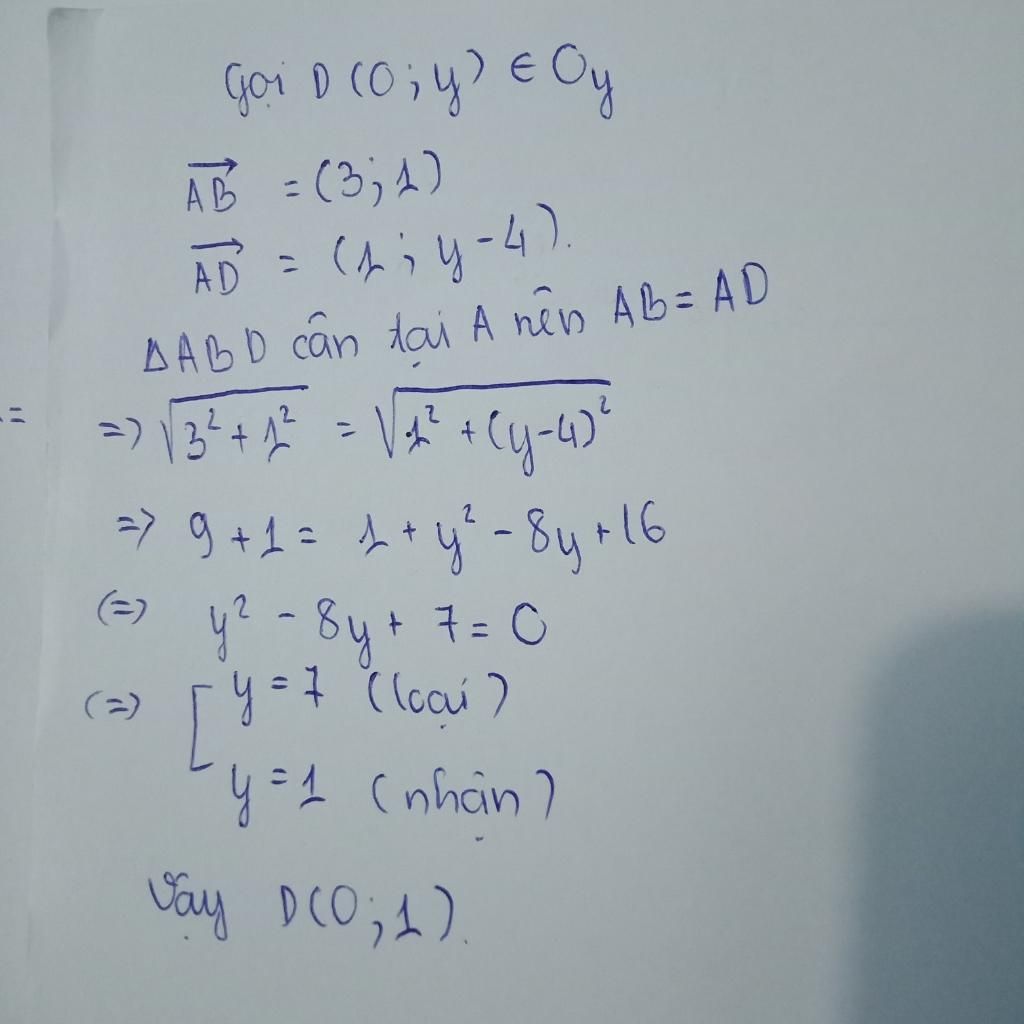 Gọi D(0;y) ∈ Oy
$\overrightarrow{AB}$ = (3;1)
$\overrightarrow{AD}$ = (1; y-4).
ΔABD cân tại A nên AB = AD
=> $\sqrt{3^2+1^2}$ = $\sqrt{1^2+(y-4)^2}$
=> 9 + 1 = 1 + y² - 8y + 16
(=) y² - 8y + 7 = 0
(=) [ y = 7 (loại)
y = 1 (nhận)
Vậy D(0;1).